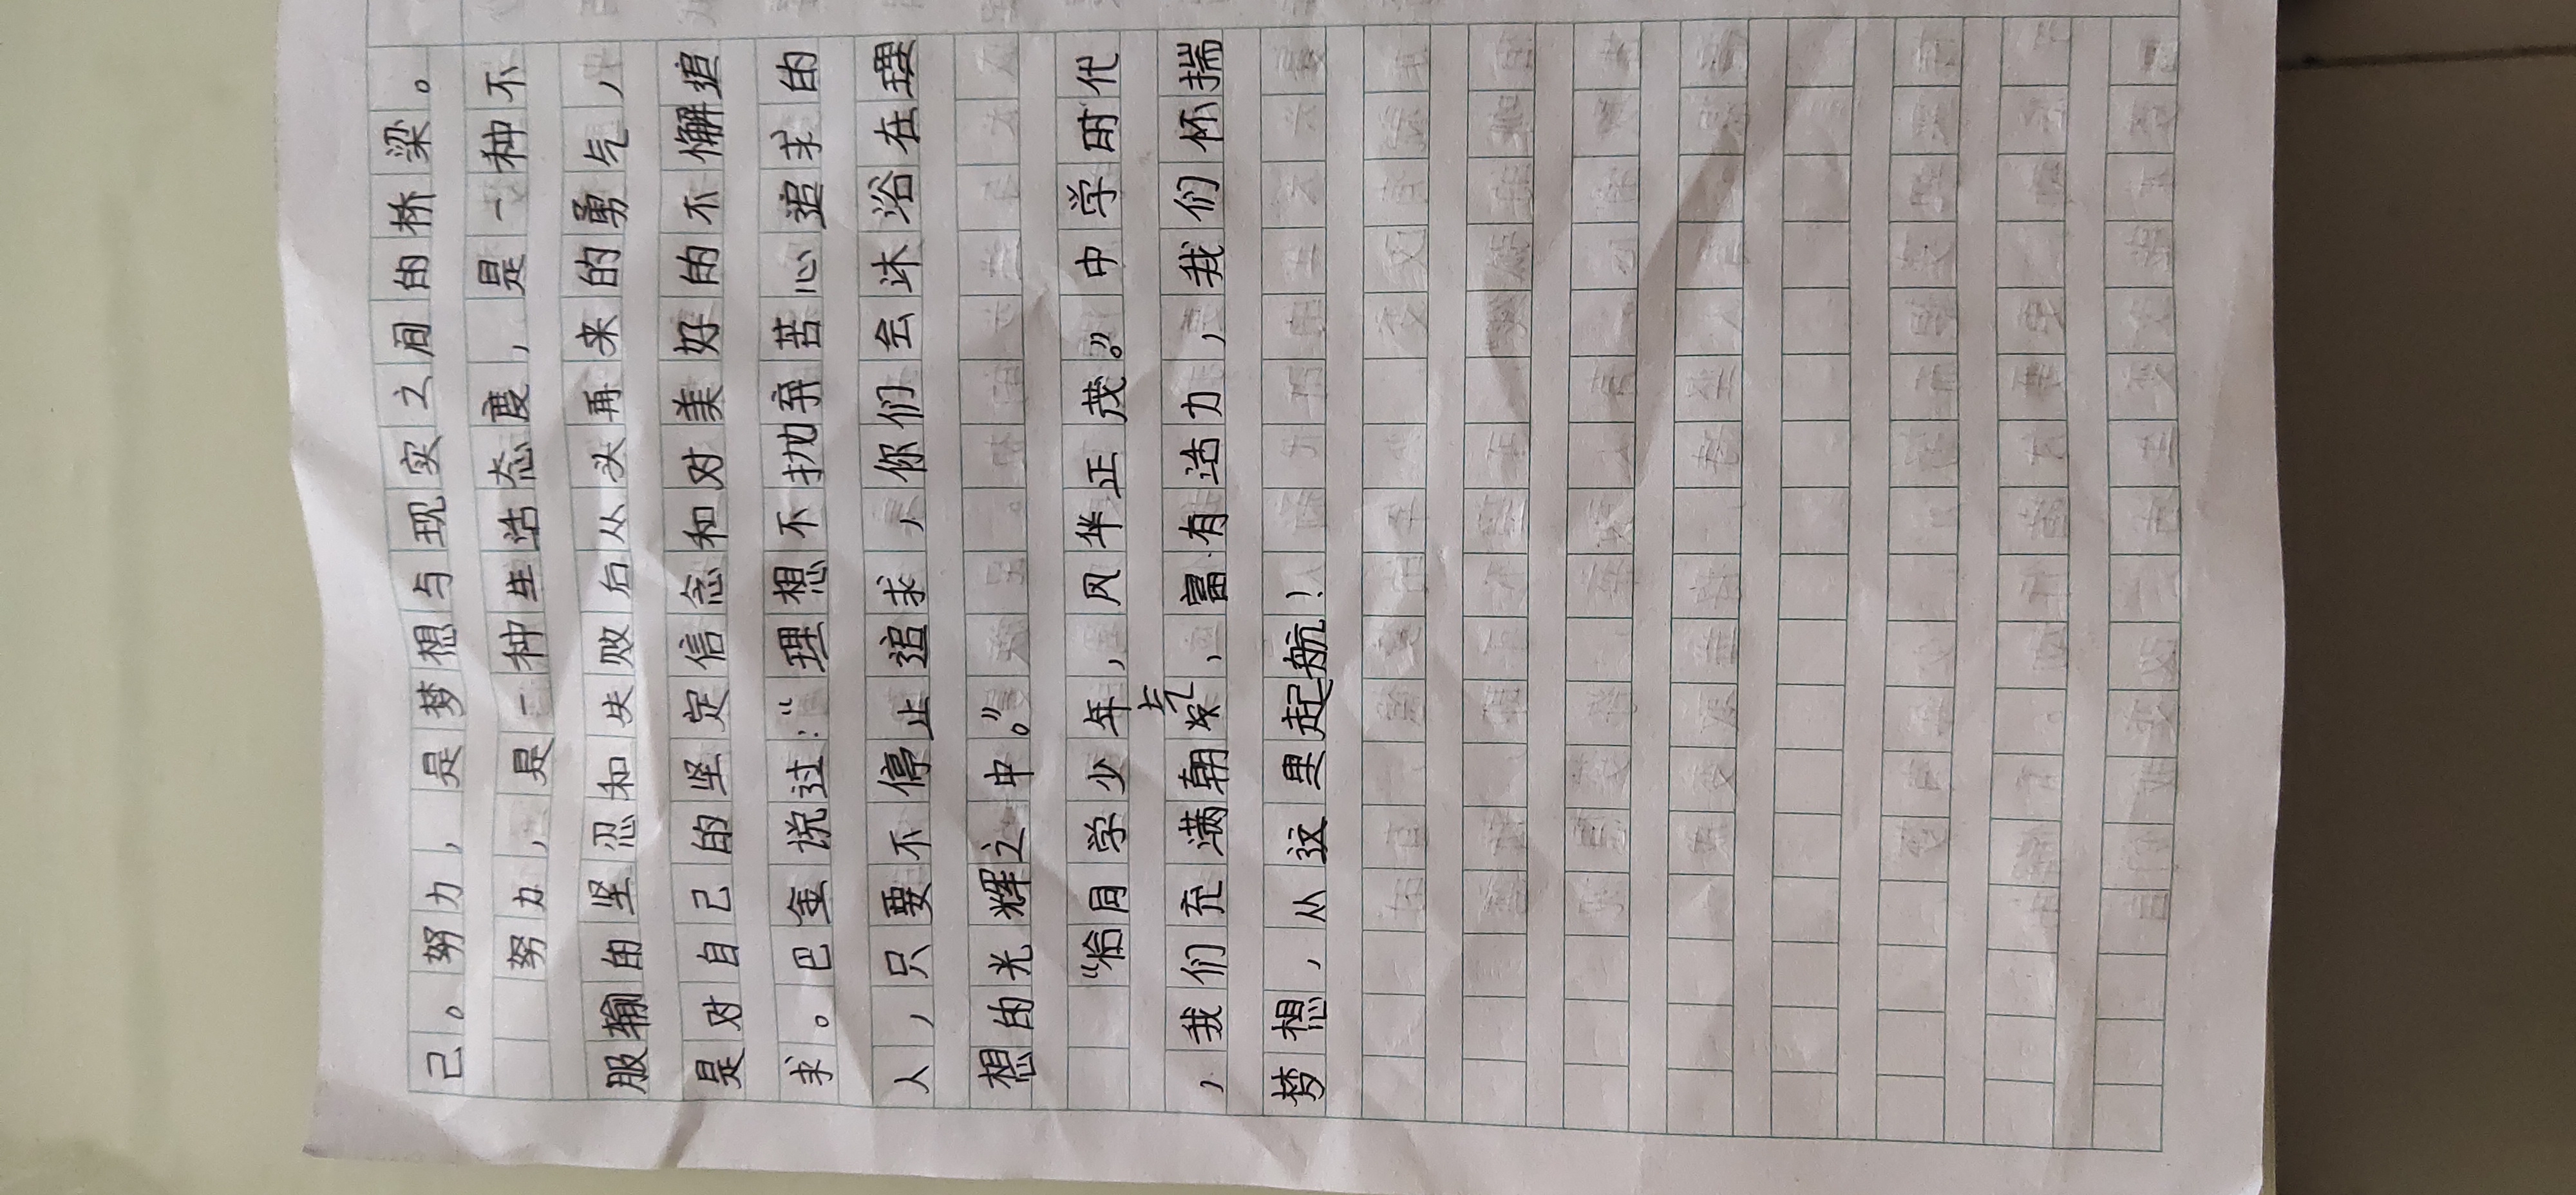 己。努力，是梦想与现实之间的桥梁。
努力，是一种生活态度，是一种不
服输的坚忍和失败后从头再来的勇气，
是对自己的坚定信念和对美好的不懈追
求。巴金说过：“理想不抛弃苦心追求的
人，只要不停止追求，你们会沐浴在理
想的光辉之中。”
“恰同学少年，风华正茂。”中学时代
，我们充满朝气、富有活力，我们怀揣
梦想，从这里起航！